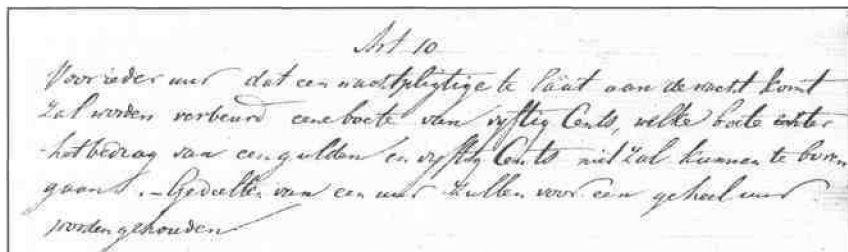 Art 10
Voor ieder uur dat een wachtpligtige te laat aan de wacht komt
zal worden verbeurd eene boete van vyftig Cents, welke boete echter
het bedrag van een gulden en vyftig Cents niet zal kunnen te boven
gaan. – Gedeelten van een uur zullen voor een geheel uur
worden gehouden